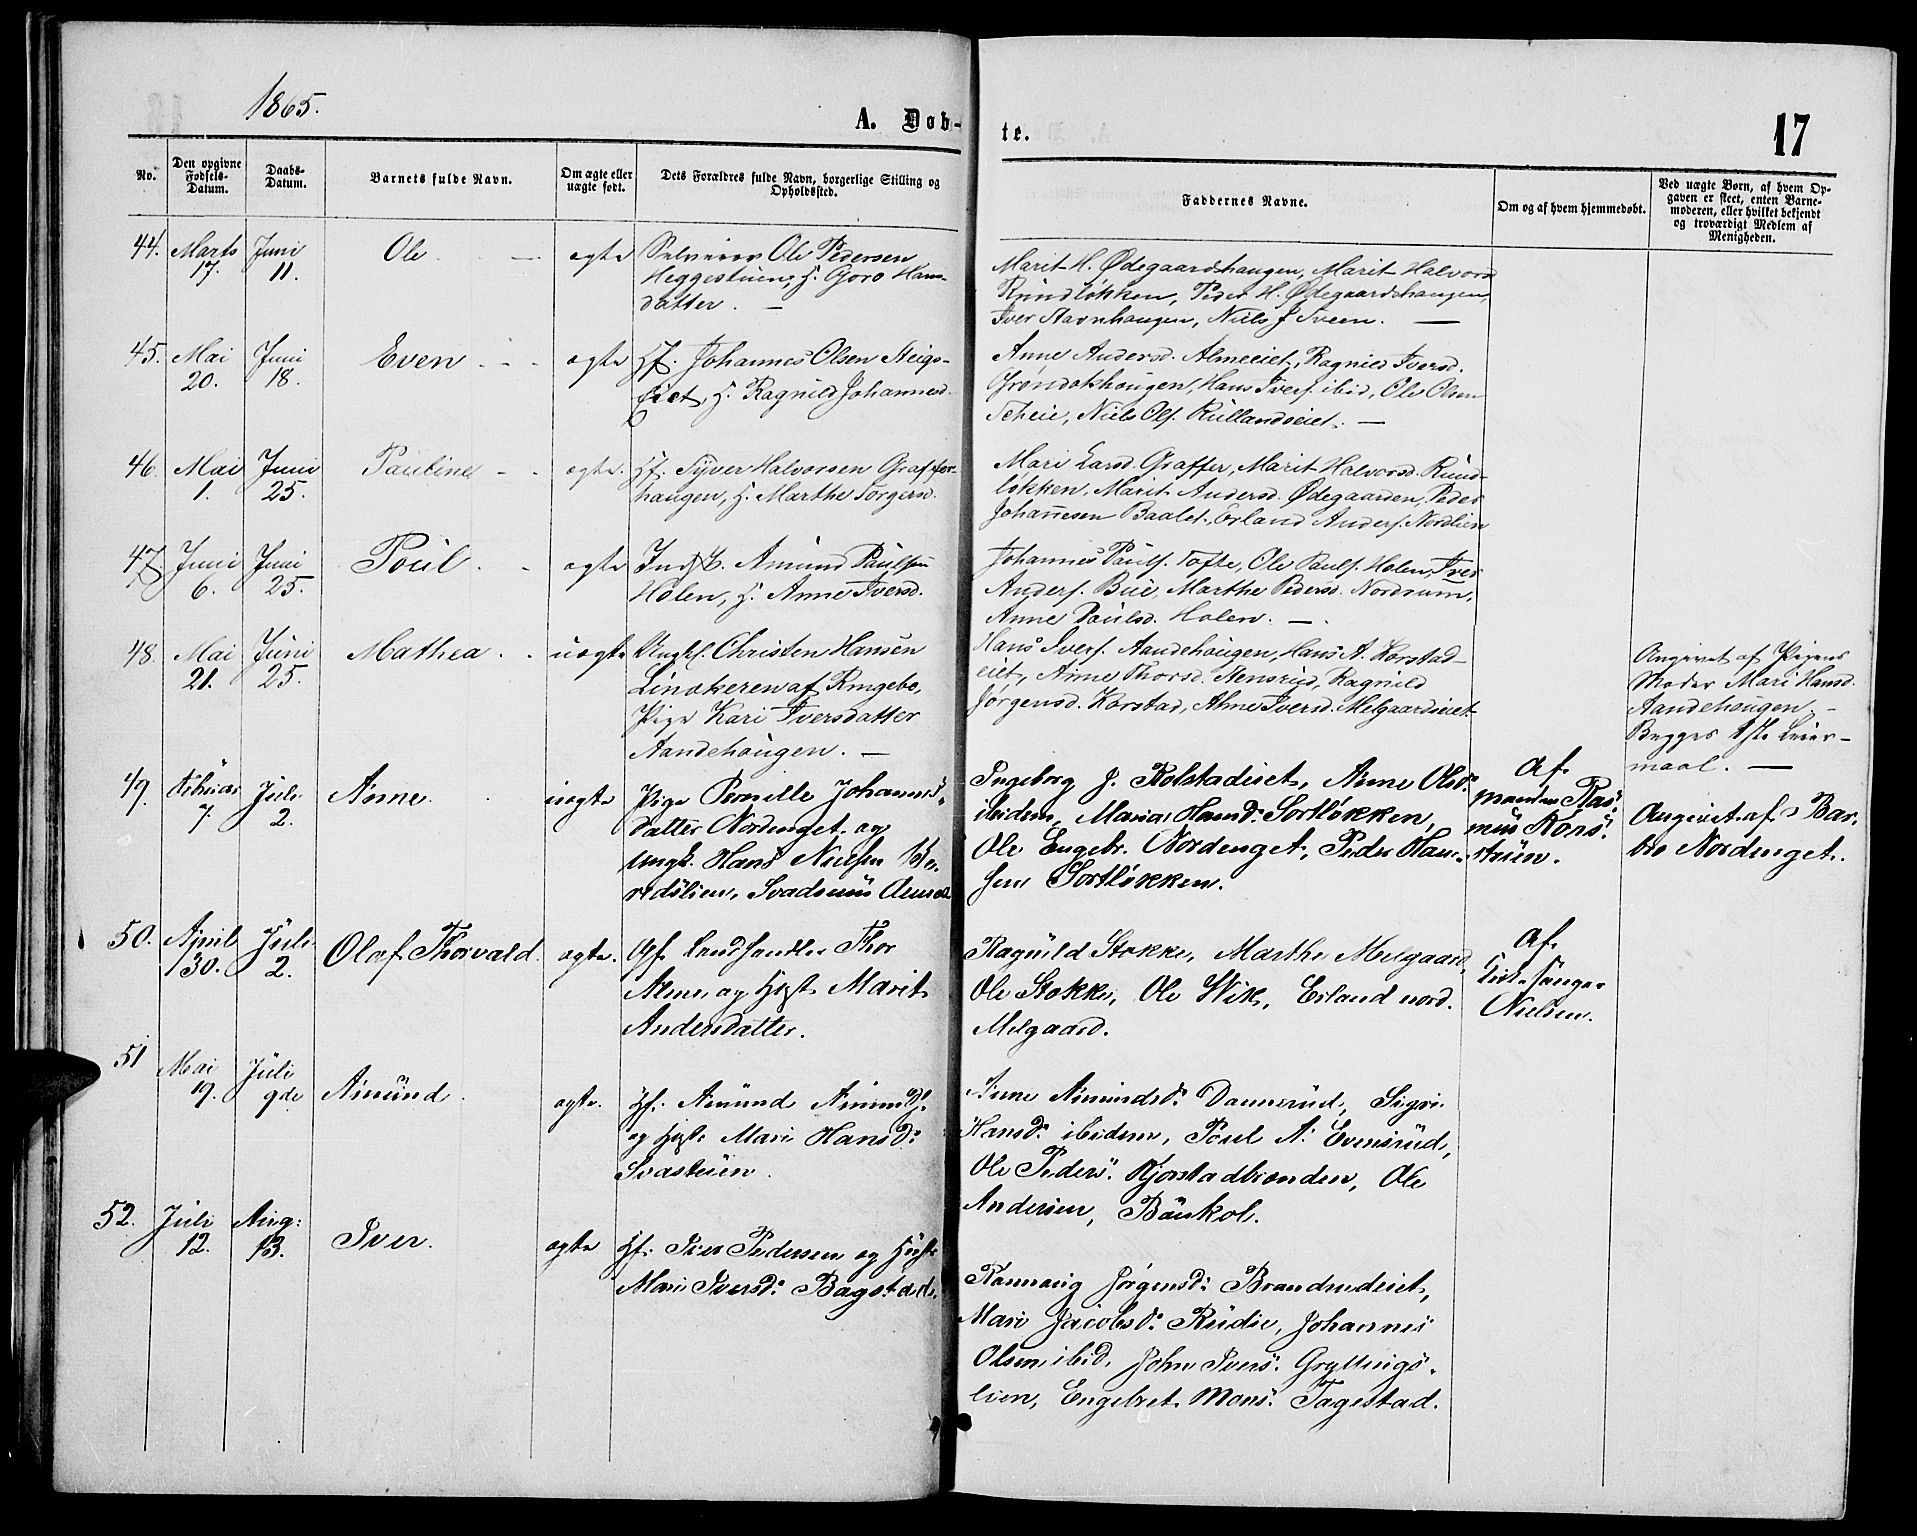 1865.
A. Døb-
te.
17
No.
Den opgivne
Fødsels-
Datum.
Daabs-
Datum.
Barnets fulde Navn.
Om ægte eller
uægte født.
Dets Forældres fulde Navn, borgerlige Stilling og
Opholdssted.
Faddernes Navne.
Om og af hvem hjemmedøbt.
Ved uægte Børn, af hvem Op-
gaven er skeet, enten Barne-
moderen, eller hvilket bekjendt
og troværdigt Medlem af
Menigheden.
44. Marts Juni Ole. — ægte Selveier Ole Pedersen
17. 11. Heggestuen, H. Goro Hans-
datter. —
Marit H. Ødegaardshaugen, Marit Halvorsd
Rundløkken, Peder H. Ødegaardshaugen,
Iver Stavnhaugen, Niels J Sveen. —
45. Mai Juni Even. - - ægte Hf. Johannes Olsen Steigs-
20. 18. eiet, H. Ragnild Johannesd.
Anne Andersd. Almeeiet, Ragnild Iversd.
Grøndalshaugen, Hans Iversf. ibid, Ole Olsen
Scheie, Niels Olsf. Rullandseiet. —
46. Mai Juni Pauline - - ægte. Hf. Syver Halvorsen Graffer-
1. 25. haugen, H. Marthe Torgersd.
Mari Larsd. Graffer, Marit Halvorsd. Rund-
løkken, Marit Andersd. Ødegaarden, Peder
Johannesen Baalet, Erland Andersf. Nordlien
47. Juni Juni Poul. - ægte Amund Paulsen
6. 25. Holen, H. Anne Iversd.
Johannes Paulsf. Tofte, Ole Paulsf. Holen, Iver
Andersf. Bue, Marthe Pedersd. Nordrum,
Anne Poulsd. Holen. —.
48. Mai Juni Mathea. . uægte Ungkl. Christen Hansen
21. 25. af Ringebo,
Pige Kari Iversdatter
Aandehougen. —
Hans Iversf. Aandehougen, Hans A. Korstad-
eiet, Anne Thorsd. Stensrud, Ragnild
Jørgensd. Korstad, Anne Iversd. Melgaardseiet
Angivet af Pigens
Moder Mari Hansd.
Aandehougen. -
Begges 1ste Leier-
maal. —
49. Februar Juli Anne. uægte Pige Pernille Johannes-
7. 2. datter Nordenget og
Ungk. Hans Nielsen
Ingeborg J. Kolstadeiet, Anne Olsd.
ibidem, Maria Hansd. Sortløkken,
Ole Engebr. Nordenget, Peder Han-
sen Sortløkken.
Af
Manden Ras-
mus Kons-
stuen.
Angivet af Bar-
bro Nordenget.
50. April Juli Olaf Thorvald. ægte. Gf. Landhandler Thor
30. 2. Alme og Hust. Marit
Andersdatter.
Ragnild Stokke, Marthe Melgaard,
Ole Stokke, Ole Wik, Erland nord.
Melgaard.
Af
Kirkesanger
Nielsen.
51 Mai Juli Amund. ægte. Hf. Amund Amunds.
19. 9de og Hust. Mari Hansd.
Svastuen.
Anne Amundsd. Dansrud, Sigri
Hansd. ibidem, Poul A. Evensrud,
Ole Peders. Kjorstadbronden, Ole
Andersen, Baukol.
52. Juli Aug: Iver. ægte Hf. Iver Pedersen og Hust
12. 13. Mari Iversd. Bagstad.
Rannaug Jørgensd. Brandrudeiet,
Mari Jacobsd. Rudie, Johannes
Olsen ibid, John Ivers. Gryttings-
lien, Engebret Mons. Tagestad.